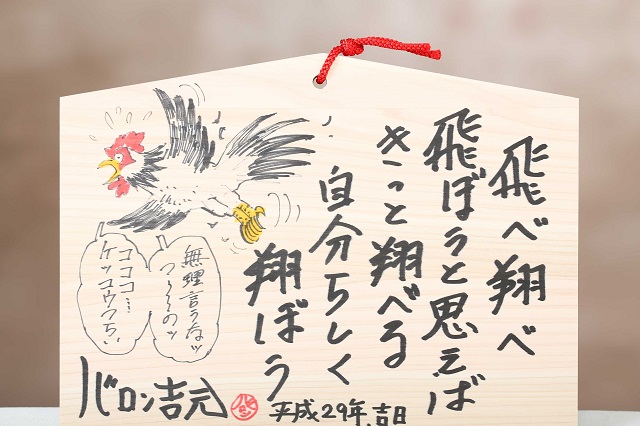 飛べ翔べ
飛ぼうと思えば
きっと翔べる
自分らしく
翔ぼう
無理言うなッ
つーのッ
コココ…
ケッコウつらい
バロン吉元
平成29年.吉日